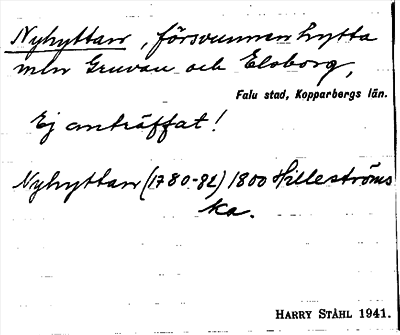 Nyhyttan, försvunnen hytta
mln Gruvan och Eloborg,
Falu stad, Kopparbergs län.
Ej anträffat!
Nyhyttan (1780-82) 1800 Hilleströms
ka.
HARRY STÅHL 1941.